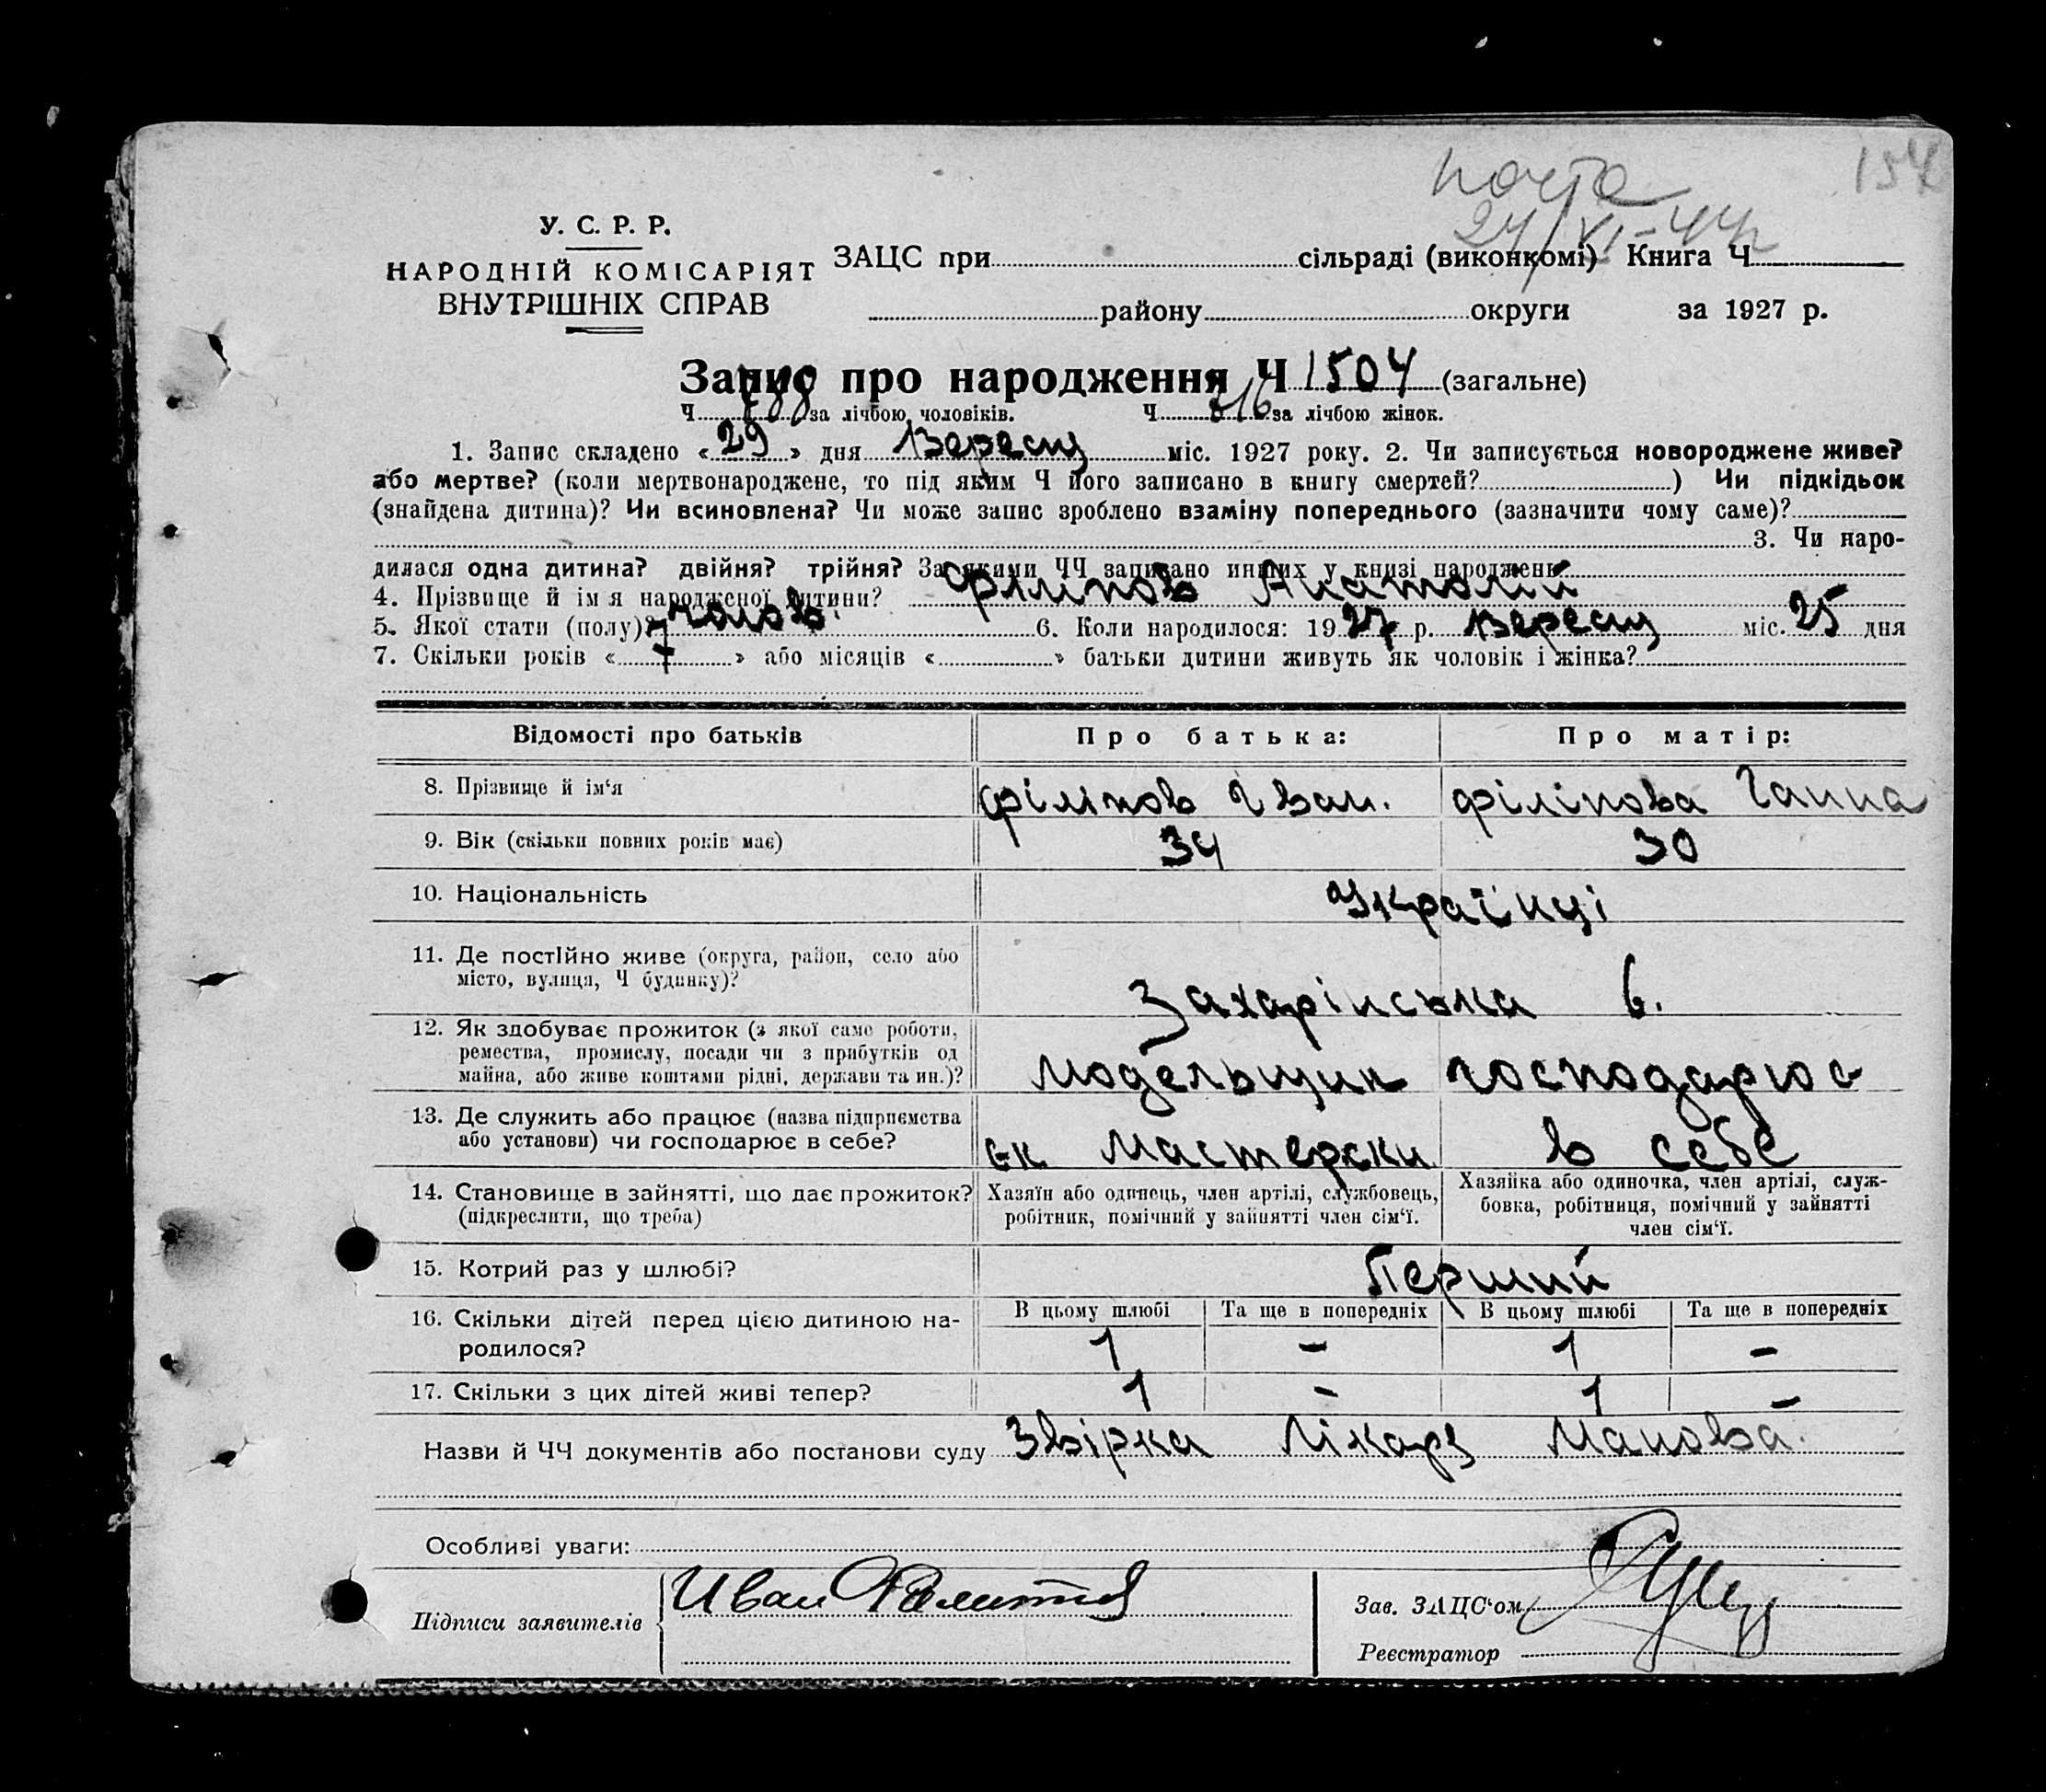 почта
157
24/VI-44р
У. С. Р. Р.
НАРОДНІЙ КОМІСАРІЯТ
ВНУТРІШНІХ СПРАВ
ЗАЦС при сільраді (виконкомі) Книга Ч
району округи за 1927 р.
Запис про народження Ч 1504 (загальне)
Ч 788 за лічбою чоловіків. Ч 716 за лічбою жінок.
1. Запис складено «29» дня Вересц міс. 1927 року. 2. Чи записується новороджене живе?
або мертве? (коли мертвонароджене, то під яким Ч його записано в книгу смертей? ) Чи підкідьок
(знайдена дитина)? Чи всиновлена? Чи може запис зроблено взаміну попереднього (зазначити чому саме)?
3. Чи наро-
дилася одна дитина? двійня? трійня? За якими ЧЧ записано инших у книзі народжень?
4. Прізвище й ім я народженої дитини? Філіпов Анатолій
5. Якої стати (полу)? чолов. 6. Коли народилося: 1927 р. Вересц міс. 25 дня
7. Скільки років «7» або місяців « » батьки дитини живуть як чоловік і жінка?
Відомості про батьків Про батька: Про матір:
8. Прізвище й ім‘я Філіпов Іван. Філіпова Ганна
9. Вік (скільки повних років має) 34 30
10. Національність Українці
11. Де постійно живе (округа, район, село або
місто, вулиця, Ч будинку)? Захарінська 6.
12. Як здобуває прожиток (з якої саме роботи,
ремества, промислу, посади чи з прибутків од
майна, або живе коштами рідні, держави та ин.)? Модельщик господарює
13. Де служить або працює (назва підприємства
або установи) чи господарює в себе? єк мастерски в себе
14. Становище в зайнятті, що дає прожиток?
(підкреслити, що треба)
Хазяїн або одинець, член артілі, службовець,
робітник, помічний у зайнятті член сім‘ї.
Хазяйка або одиночка, член артілі, служ-
бовка, робітниця, помічний у зайнятті
член сім‘ї.
15. Котрий раз у шлюбі? Перший
В цьому шлюбі Та ще в попередніх В цьому шлюбі Та ще в попередніх
16. Скільки дітей перед цією дитиною на-
родилося? 1 - 1 -
17. Скільки з цих дітей живі тепер? 1 - 1 -
Назви й ЧЧ документів або постанови суду Звірка Лікарз Манова
Особливі уваги:
Підписи заявителів Иван Филиппов
Зав. ЗАЦС‘ом
Реєстратор